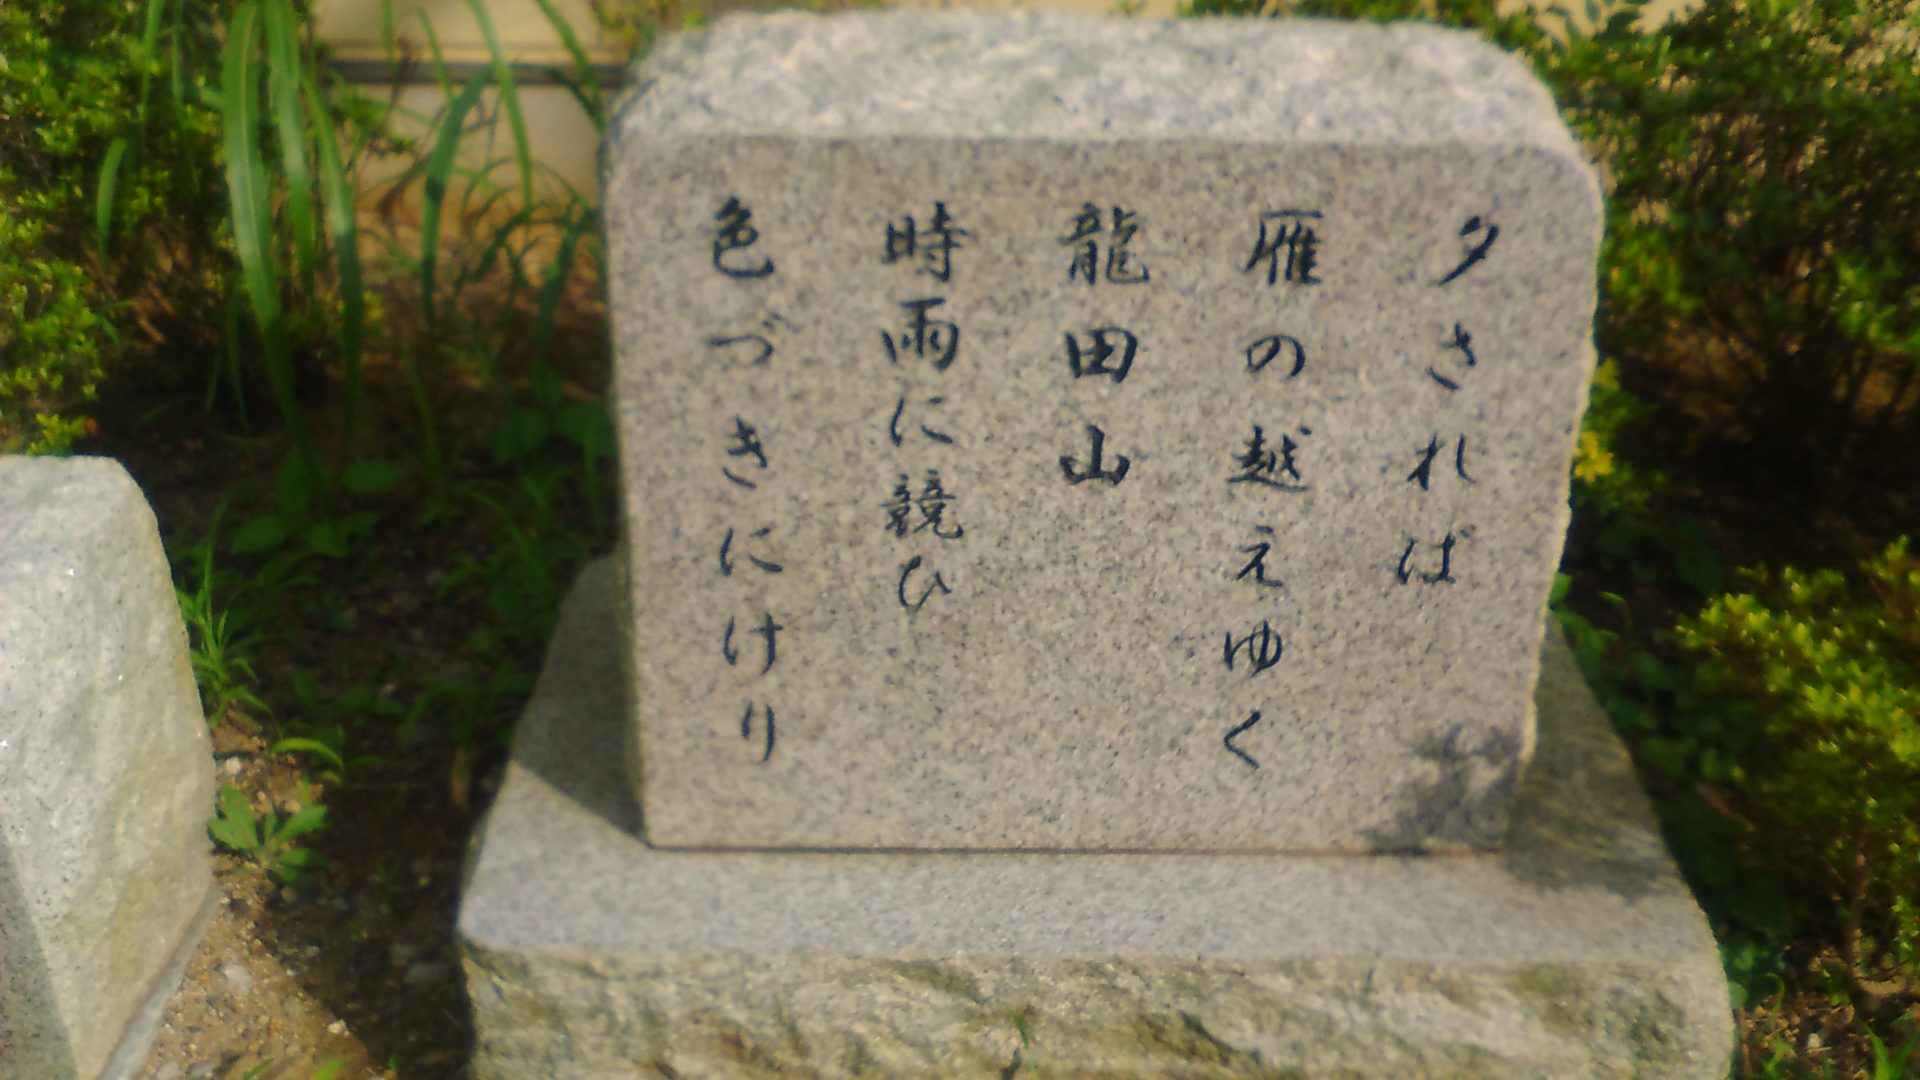 夕されば
雁の越えゆく
龍田山
時雨に競ひ
色づきにけり